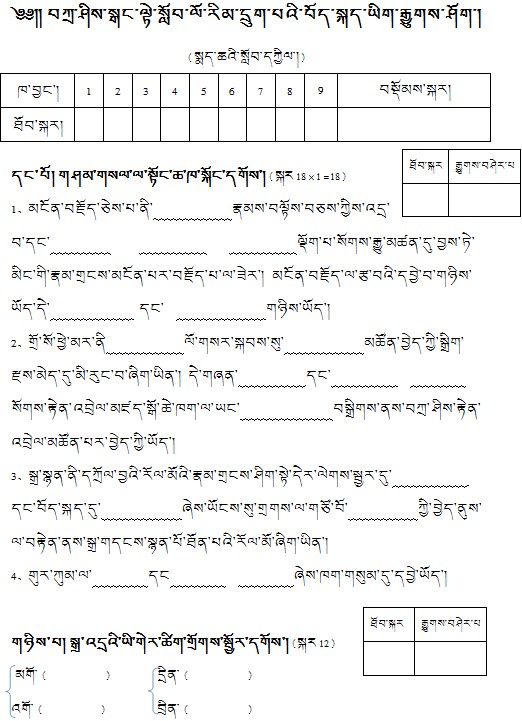 ༄༅།། བཀྲ་ཤིས་སྒང་ལྟེ་སློབ་ལོ་རིམ་དྲུག་པའི་བོད་སྐད་ཡིག་རྒྱུགས་ཤོག།
(སྨད་ཆའི་སློབ་དཀྱིལ།)
ཁ་བྱང་། 1 2 3 4 5 6 7 8 9 བསྡོམས་སྐར།
ཐོབ་སྐར།
ཐོབ་སྐར རྒྱུགས་བཤེར་པ
དང་པོ། གཤམ་གསལ་ལ་སྟོང་ཆ་ཁ་སྐོང་དགོས། (སྐར 18×1=18)
1、མངོན་བརྗོད་ཅེས་པ་ནི་ རྣམས་བལྟོས་བཅས་ཀྱིས་འདྲ་
བ་དང་ ལྡོག་པ་སོགས་རྒྱུ་མཚན་དུ་བྱས་ཏེ་
མིང་གི་རྣམ་གྲངས་མངོན་པར་བརྗོད་པ་ལ་ཟེར། མངོན་བརྗོད་ལ་རྩ་བའི་དབྱེ་བ་གཉིས་
ཡོད་དེ་ དང་ གཉིས་ཡོད།
2、གྲོ་སོ་ཕྱེ་མར་ནི ལོ་གསར་སྐབས་སུ་ མཚོན་བྱེད་ཀྱི་སྒྲིག་
རྫས་མེད་དུ་མི་རུང་བ་ཞིག་ཡིན། དེ་གཞན་ དང་
སོགས་རྟེན་འབྲེལ་མཛད་སྒོ་ཆེ་ཁག་ལ་ཡང་ བསྒྲིགས་ནས་བཀྲ་ཤིས་རྟེན་
འབྲེལ་མཚོན་པར་བྱེད་ཀྱི་ཡོད།
3、སྒྲ་སྙན་ནི་དཀྲོལ་བྱའི་རོལ་མོའི་རྣམ་གྲངས་ཤིག་སྟེ་དེར་ལེགས་སྦྱར་དུ་
དང་བོད་སྐད་དུ་ ཞེས་ཡོངས་སུ་གྲགས་ལ་གཙོ་བོ་ ཀྱི་བྱེད་ནུས་
ལ་བརྟེན་ནས་སྒྲ་གདངས་སྙན་པོ་ཐོན་པའི་རོལ་མོ་ཞིག་ཡིན།
4、གུར་ཀུམ་ལ་ དང ཞེས་ཁག་གསུམ་དུ་དབྱེ་ཡོད།
ཐོབ་སྐར རྒྱུགས་བཤེར་པ
གཉིས་པ། སྒྲ་འདྲའི་ཡི་གེར་ཚིག་གྲོགས་སྦྱོར་དགོས། (སྐར 12)
མགོ་ ( ) དྲིན་ ( )
འགོ་ ( ) བྲིན་ ( )